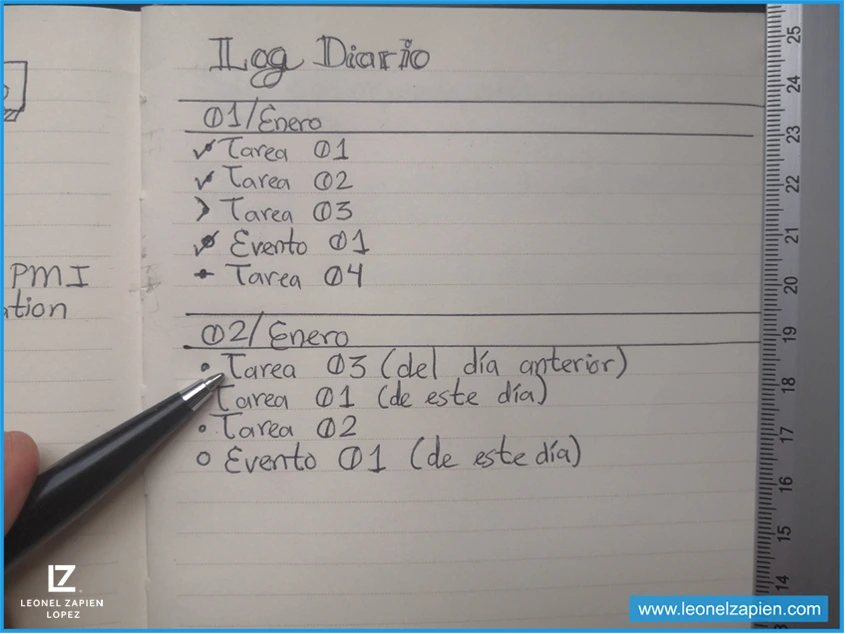 PMI
ation
Log Diario
01/Enero
✓ Tarea 01
✓ Tarea 02
> Tarea 03
✓ Evento 01
Tarea 04
02/Enero
• Tarea 03 (del día anterior)
Tarea 01 (de este día)
• Tarea 02
○ Evento 01 (de este día)
25
24
23
22
21
20
19
18
17
16
15
14
LZ
LEONEL ZAPIEN
LOPEZ
www.leonelzapien.com